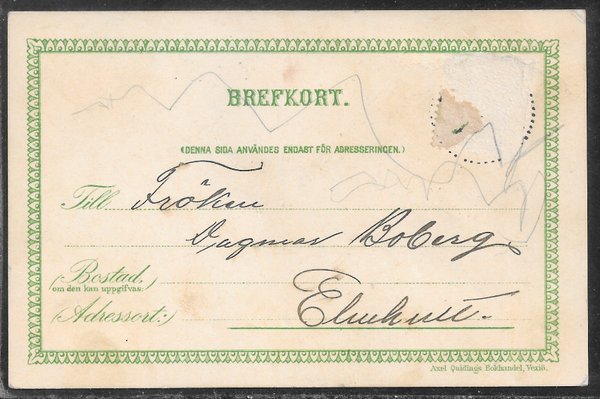 BREFKORT.
(DENNA SIDA ANVÄNDES ENDAST FÖR ADRESSERINGEN.)
Till Fröken
Dagmar Boberg
(Bostad,
om den kan uppgifvas:)
(Adressort:) Elmhult.
Axel Quidings Bokhandel, Vexiö.